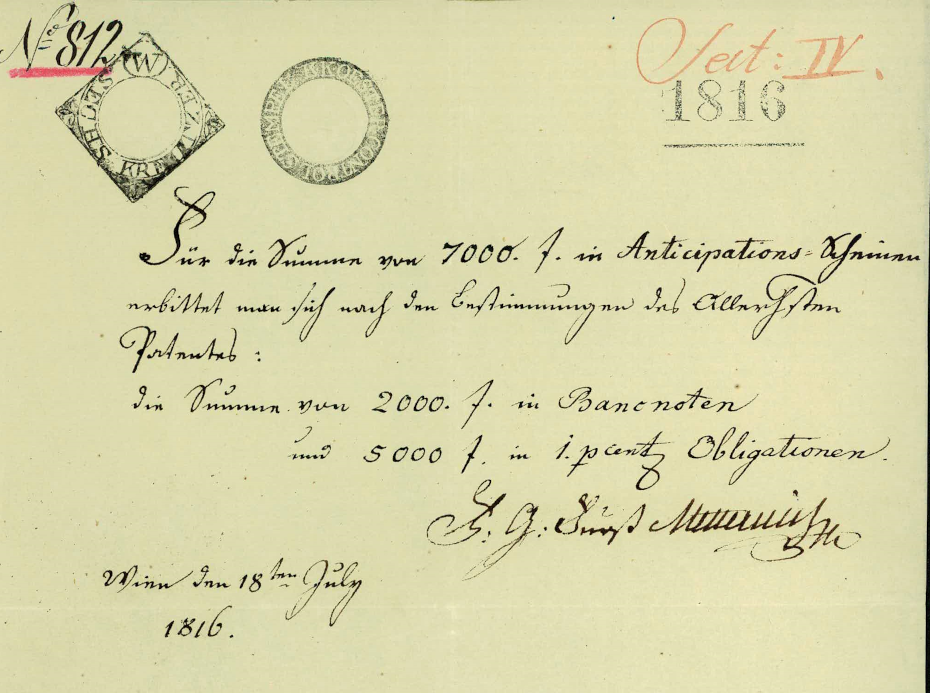 Nro 812
Sect: IV.
SECHS KREUTZER (W)
1816
Für die Summe von 7000. f. in Anticipations-Scheinen
erbittet man sich nach den Bestimmungen des Allerhsten
Patentes:
die Summe von 2000. f. in Bancnoten
und 5000 f. in 1. pcent Obligationen.
F. G: Fürst Metternich
Wien den 18ten July
1816.